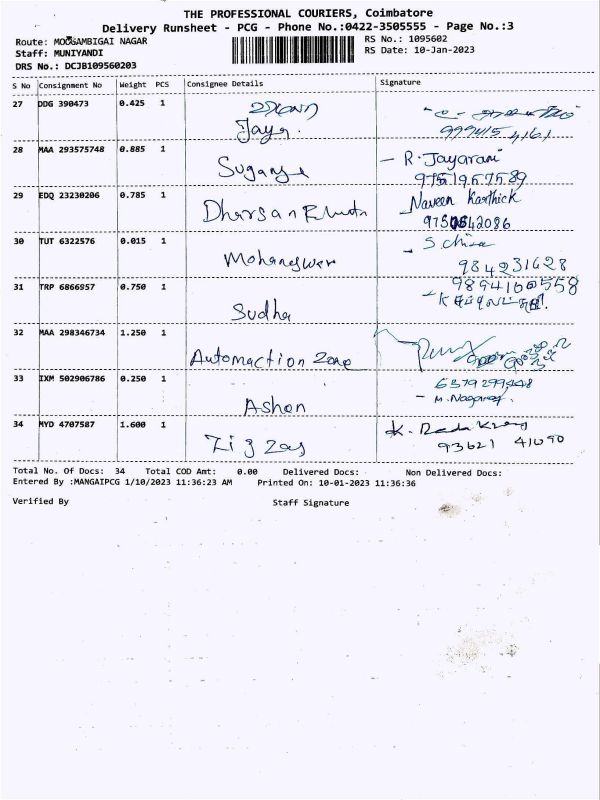 THE PROFESSIONAL COURIERS, Coimbatore
Delivery Runsheet - PCG - Phone No.:0422-3505555 - Page No.:3
Route: MOOGAMBIGAI NAGAR
RS No.: 1095602
Staff: MUNIYANDI
RS Date: 10-Jan-2023
DRS No.: DCJB109560203
S No Consignment No Weight PCS Consignee Details Signature
27 DDG 390473 0.425 1
Jaya.
28 MAA 293575748 0.885 1 Suganya R. Jayarani
9751957589
29 EDQ 23230206 0.785 1 Naveen Karthick
30 TUT 6322576 0.015 1 Mohaneswar
984231628
31 TRP 6866957 0.750 1 Sudha 9894160558
32 MAA 298346734 1.250 1 Automaction Zone
33 IXM 502906786 0.250 1 Ashon
M. Nagaraj.
34 MYD 4707587 1.600 1 Zig zag
93621 41090
Total No. Of Docs: 34 Total COD Amt: 0.00 Delivered Docs: Non Delivered Docs:
Entered By :MANGAIPCG 1/10/2023 11:36:23 AM Printed On: 10-01-2023 11:36:36
Verified By Staff Signature